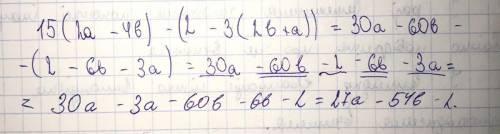 15(2a - 4b) - (2 - 3(2b+a)) = 30a - 60b -
-(2 - 6b - 3a) = 30a - 60b - 2 - 6b - 3a =
= 30a - 3a - 60b - 6b - 2 = 27a - 54b - 2.